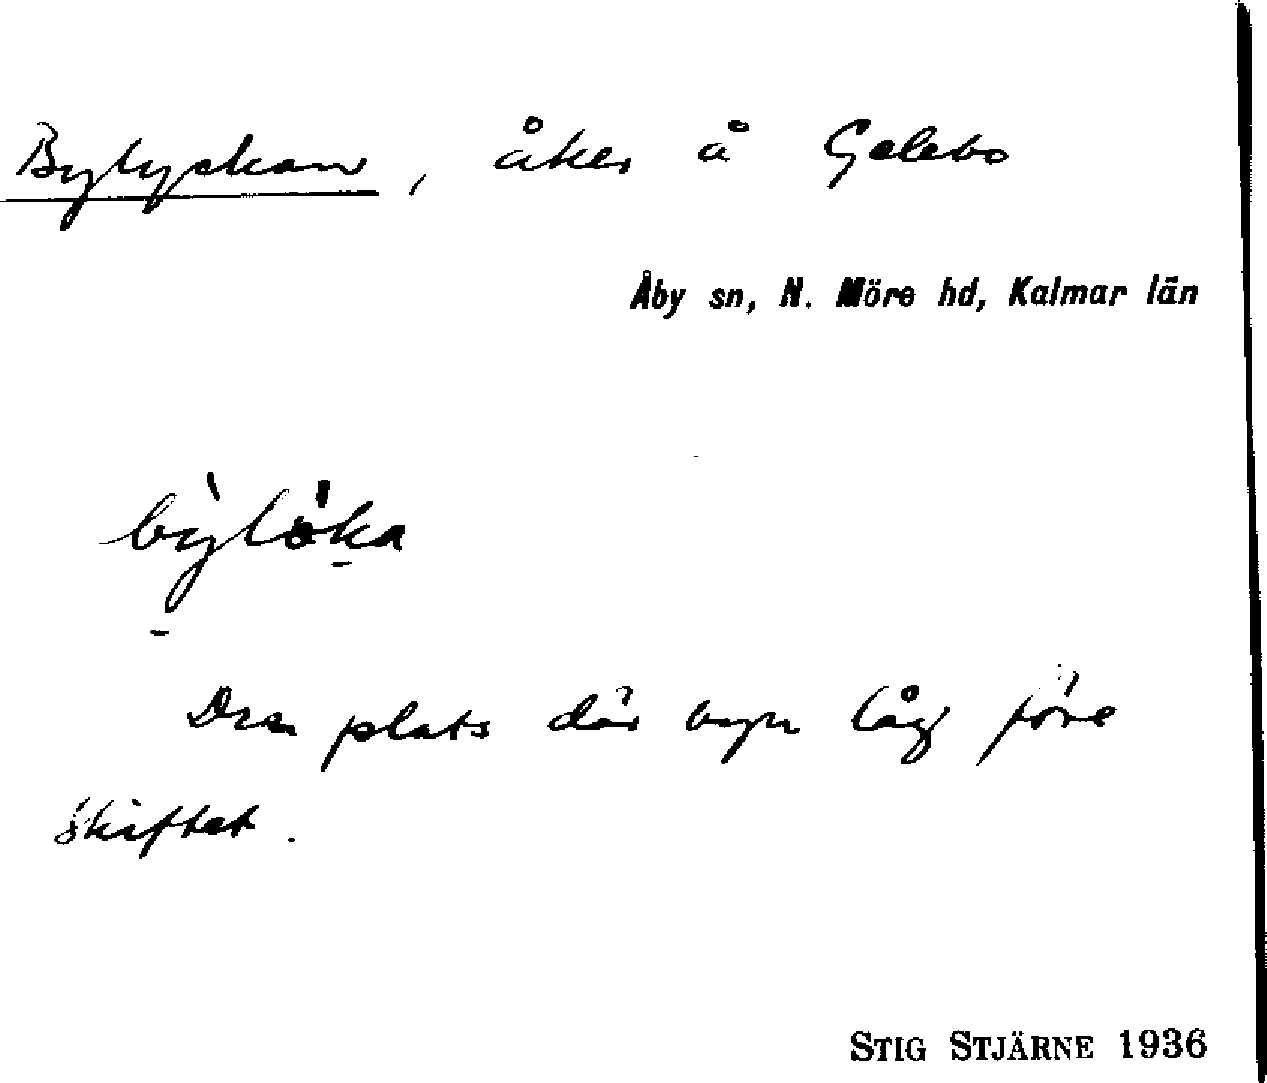 Bylyckan, åker å Gelebo
Åby sn, N. Möre hd, Kalmar län
bỳlö́ka
Den plats där byn låg före
skiftet.
STIG STJÄRNE 1936